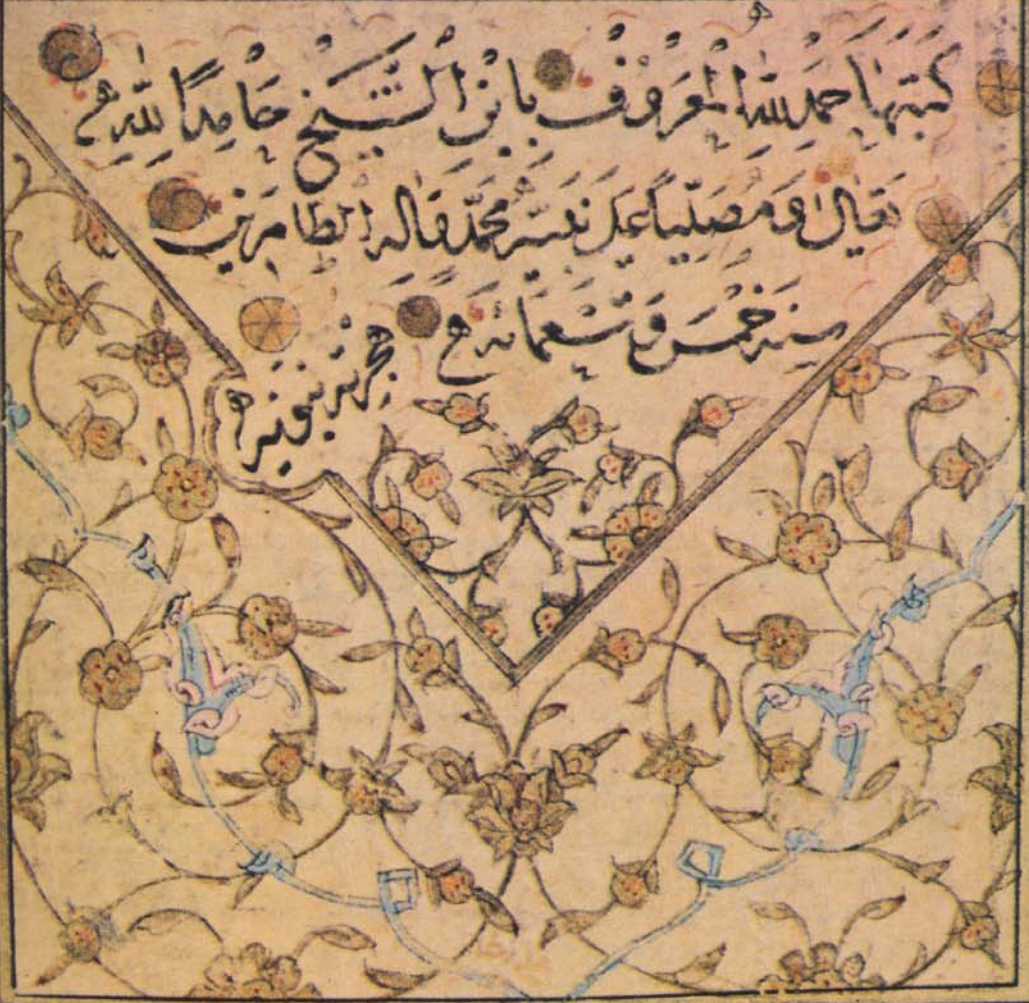 كَتَبَهَا حَمْدُ اللهِ الْمَعْرُوفْ بِابْنِ الشَّيْخِ حَامِدًا لِلّٰهِ
تَعَالٰى وَمُصَلِّيًا عَلٰى نَبِيِّهِ مُحَمَّدٍ وَاٰلِهِ الطَّاهِرِينَ
سِنَةِ خَمْسَ وَتِسْعَمَائَه
هِجْرِيَّه نَبَوِيَّه